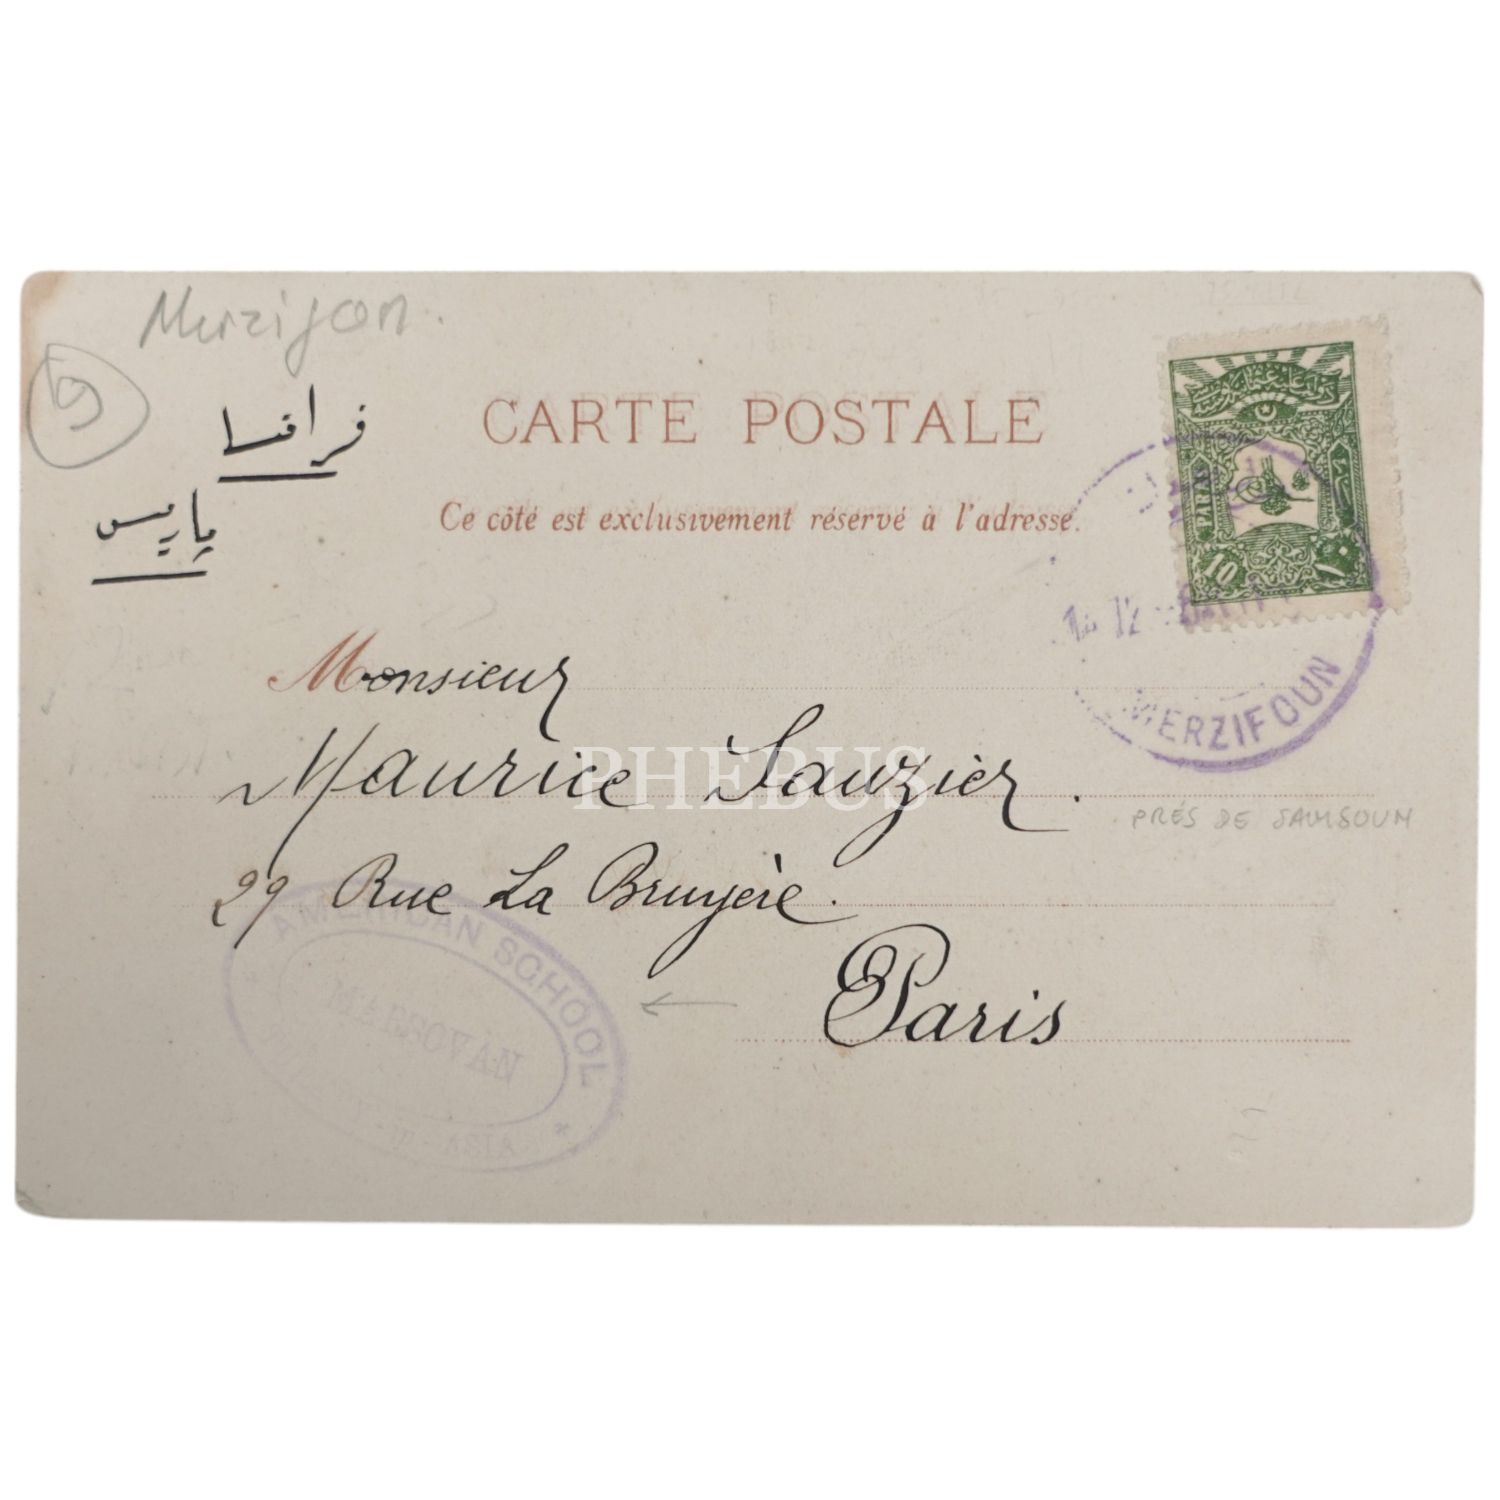 Merzifon.
9
فرانسا
پاريس
CARTE POSTALE
Ce côté est exclusivement réservé à l'adresse.
دولت عليه عثمانيه
PARAS
10
١٠
MERZIFOUN
Monsieur
Maurice Sauzier.
PHEBUS
PRÉS DE SAMSOUN
29 Rue La Bruyère.
Paris
AMERICAN SCHOOL
MARSOVAN
ASIA